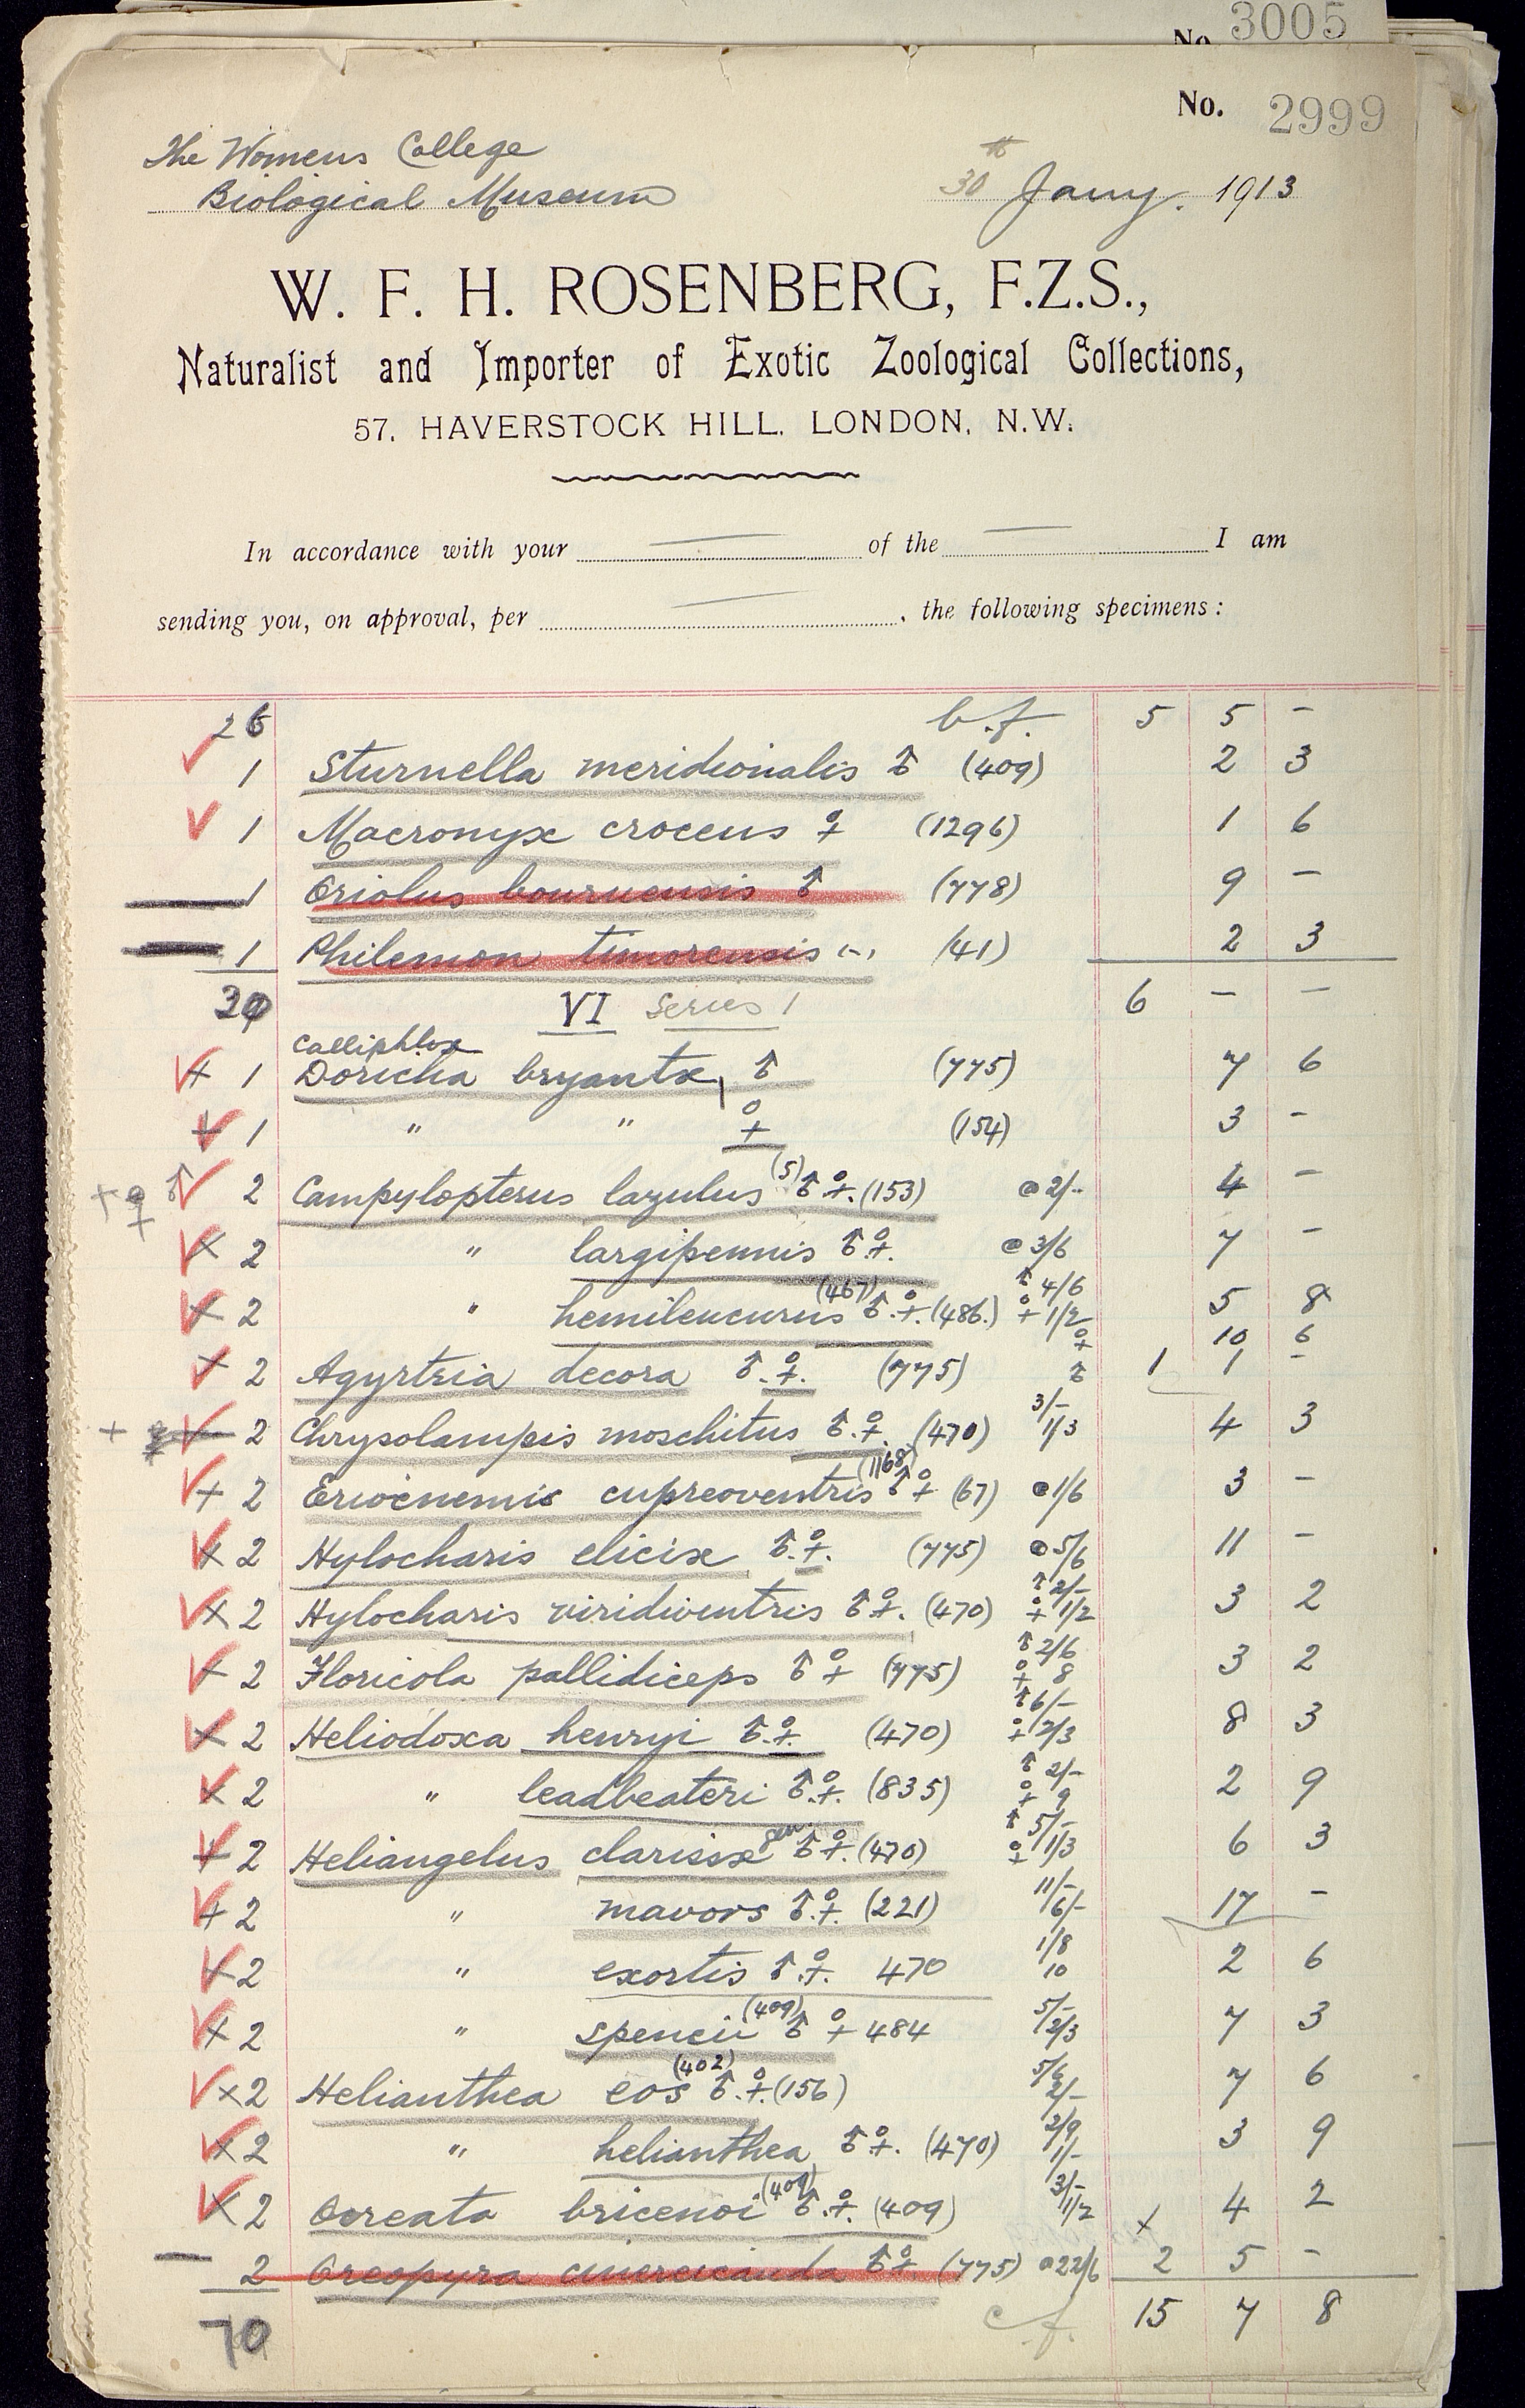 No. 3005
No. 2999
The Womens College
Biological Museum
30th Jany. 1913
W. F. H. ROSENBERG, F.Z.S.,
Naturalist and Importer of Exotic Zoological Collections,
57, HAVERSTOCK HILL, LONDON, N.W.
In accordance with your of the I am
sending you, on approval, per , the following specimens :
26 b.f. 5 5 -
1 Sturnella meridionalis ♂ (409) 2 3
1 Macronyx croceus ♀ (1296) 1 6
1 Oriolus bournensis ♂ (778) 9 -
1 Philemon timorensis (-) (41) 2 3
30 VI Series 1 6 - -
Calliphlox
+ 1 Doricha bryantæ, ♂ (775) 7 6
+ 1 " " ♀ (154) 3 -
+ ♀ ♂ 2 Campylopterus lazulus (5) ♂ ♀. (153) @ 2/- 4 -
× 2 " largipennis ♂.♀. @ 3/6 7 -
× 2 " hemileucurus (467) ♂.♀. (486.) ♂ 4/6 ♀ 1/2 5 8
+ 2 Agyrtria decora ♂.♀. (775) ♀ 10 6 ♂ 1 1 -
+ 2 Chrysolampis moschitus ♂.♀. (470) 3/- 1/3 4 3
+ 2 Eriocnemis cupreoventris (1168) ♂ ♀ (67) @ 1/6 3 -
× 2 Hylocharis eliciæ ♂.♀. (775) @ 5/6 11 -
× 2 Hylocharis viridiventris ♂ ♀. (470) ♂ 2/- ♀ 1/2 3 2
+ 2 Floricola pallidiceps ♂ ♀ (775) ♂ 2/6 ♀ 8 3 2
× 2 Heliodoxa henryi ♂.♀. (470) ♂ 6/- ♀ 2/3 8 3
× 2 " leadbeateri ♂.♀. (835) ♂ 2/- ♀ 9 2 9
+ 2 Heliangelus clarissæ ♂ ♀. (470) ♂ 5/- ♀ 1/3 6 3
+ 2 " mavors ♂.♀. (221) 11/- 6/- 17 -
+ 2 " exortis ♂.♀. 470 1/8 10 2 6
× 2 " spencii (409) ♂ ♀ 484 5/- 2/3 7 3
× 2 Helianthea eos (402) ♂.♀. (156) 5/6 2/- 7 6
× 2 " helianthea ♂ ♀. (470) 2/9 1/- 3 9
× 2 Ocreata bricenoi (409) ♂.♀. (409) 3/- 1/2 × 4 2
2 Oreopyra cinereicauda ♂ ♀. (775) @ 22/6 2 5 -
70 c.f. 15 7 8